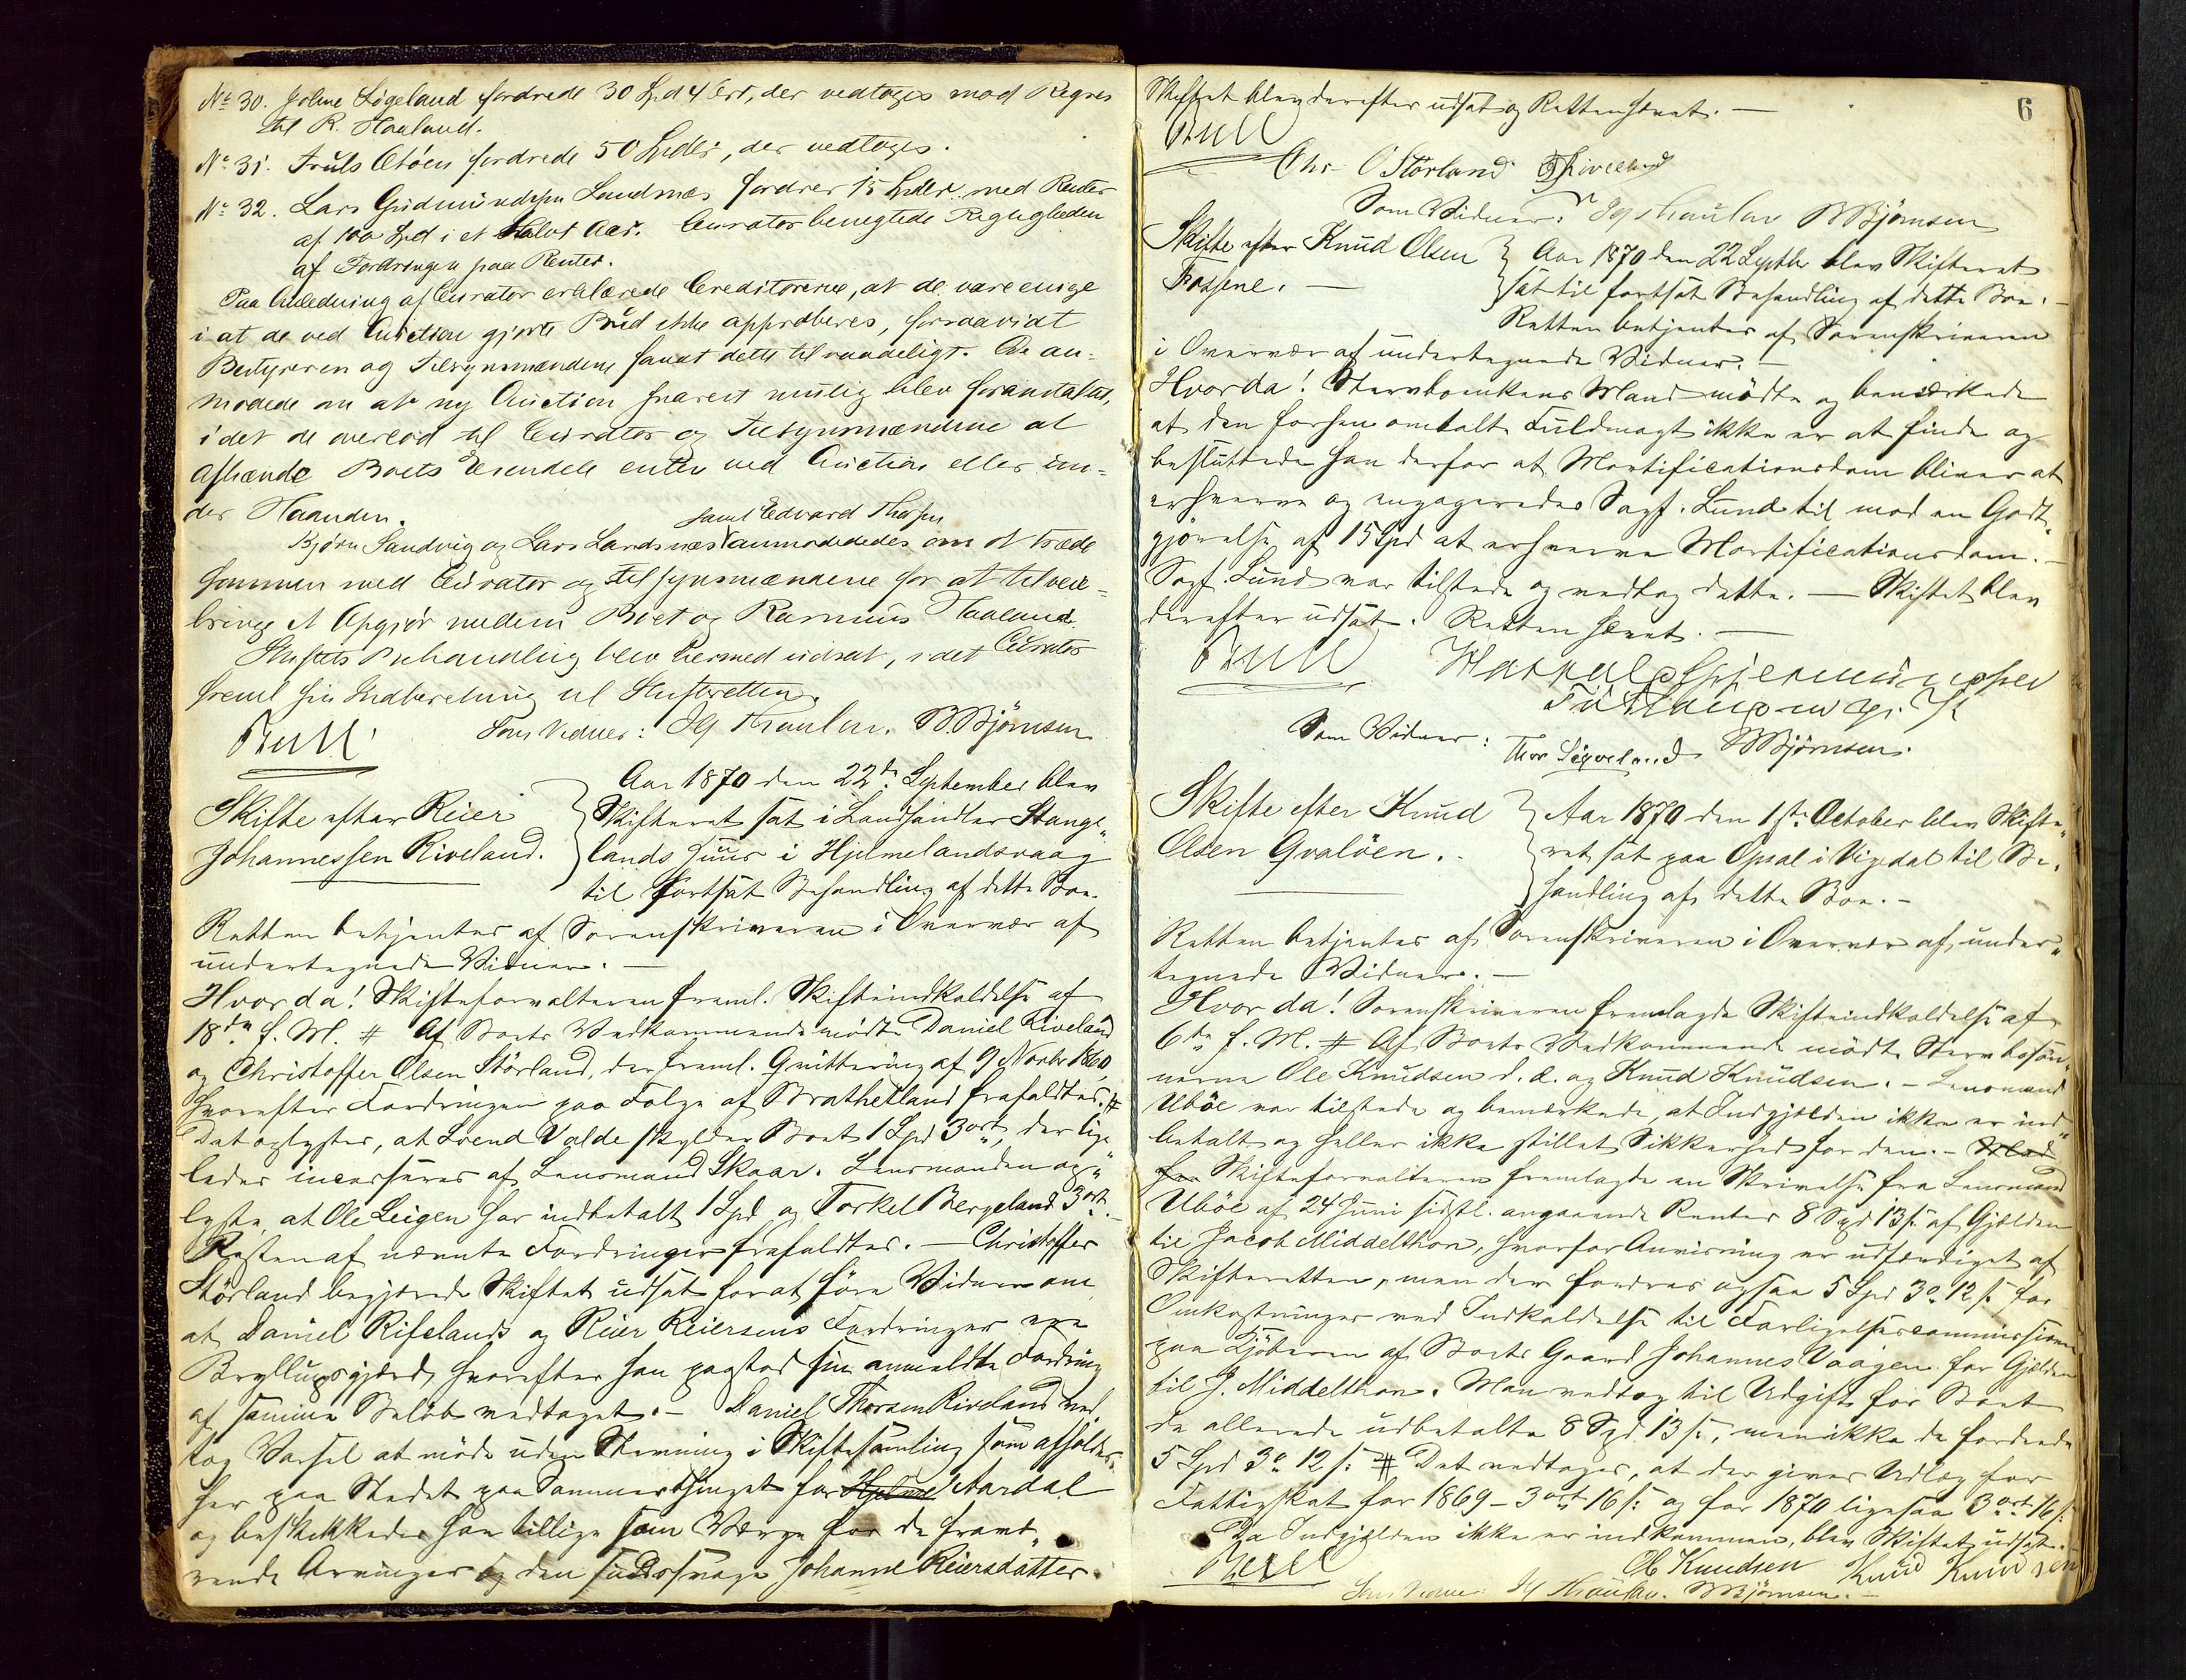 No 30. Johne Løgeland fordrede 30 Spd 4 Ort, der vedtoges mod Regres
til R. Haaland.
No 31. Truls Etöen fordrede 50 Spdlr, der vedtoges.
No 32. Lars Gudmundsen Landmæs fordrer 15 Spdlr med Renter
af 100 Spd i et halvt Aar. Curator benegtede Rigtigheden
af Fordringen paa Renter.
Paa Anledning af Curator erklærede Creditorerne, at de vare enige
i at de ved Auction gjorte Bud ikke approberes, forsaavidt
Bestyreren og Tilsynsmændene fandt dette tilraadeligt. De an=
modede om at ny Auction snarest mulig blev foranstaltet,
idet de overlod til Curator og Tilsynsmændene at
afhænde Boets Eiendele enten ved Auction eller un=
der Haanden.
samt Edvard Thorsen
Bjørn Sandvig og Lars Landsnæs anmodedes om at træde
sammen med Curator og tilsynsmændene for at tilveie=
bringe et Opgjør mellem Boet og Rasmus Haaland.
Skiftets Behandling blev hermed udsat, idet Curator
freml sin Indberetning til Skifteretten.
Bull
Som Vidner: Ig Thaulow. B. Bjørnsen
Skifte efter Reier
Johannessen Riveland.
Aar 1870 den 22de September blev
Skifteret sat i Landhandler Stange„
lands Huus i Hjelmelandsvaag
til fortsat Behandling af dette Boe.
Retten betjentes af Sorenskriveren i Overvær af
undertegnede Vidner. —
Hvorda! Skifteforvalteren freml. Skifteindkaldelse af
18de f. M. # Af Boets Vedkommende mødte Daniel Riveland
og Christoffer Olsen Störland, der freml. Qvittering af 9 Novbr 1860,
hvorefter Fordringen paa Følge af Brathetland frafaldtes. #
Det oplystes, at Svend Valde skylder Boet 1 Spd 3 ort, der lige
ledes incasseres af Lensmand Skaar. Lensmanden op„
lyste, at Ole Leigen har indbetalt 1 Spd og Torkel Bergeland 3 ort.
Resten af nævnte Fordringer frafaldtes. — Christoffer
Störland begjærede Skiftet udsat for at føre Vidner om
at Daniel Rifelands og Reier Reiersens Fordringer ere
Bryllupsgjæld, hvorefter han paastod sin anmeldte Fordring
af samme Beløb vedtaget. — Daniel Thorsen Riveland ved
tog Varsel at møde uden Stevning i Skiftesamling som afholdes
her paa Stedet paa Sommerthinget for Hjelme Aardal
og beskikkedes han tillige som Værge for de fravæ„
rende Arvinger og den sindssvage Johanne Reiersdatter.
6
Skiftet blev derefter udsat og Retten hævet. —
Bull
Chr. O Störland D Riveland
Som Vidner: Ig Thaulow B Bjørnsen
Skifte efter Knud Olsen
Fossene. —
Aar 1870 den 22 Septbr blev Skifteret
sat til fortsat Behandling af dette Boe. —
Retten betjentes af Sorenskriveren
i Overvær af undertegnede Vidner. —
Hvorda! Stervboenkens Mand mødte og bemærkede
at den forhen omtalte Fuldmagt ikke er at finde og
besluttede han derfor at Mortificationsdom bliver at
erhverve og engageredes Sagf. Lund til mod en Godt„
gjørelse af 15 Spd at erhverve Mortificationsdom. —
Sagf. Lund var tilstede og vedtog dette. — Skiftet blev
derefter udsat. Retten hævet. —
Bull
Som Vidner: Thor Sigveland B Bjørnsen.
Skifte efter Knud
Olsen Qvalöen.
Aar 1870 den 1ste October blev Skifte„
ret sat paa Opsal i Vigedal til Be„
handling af dette Boe. —
Retten betjentes af Sorenskriveren i Overvær af under„
tegnede Vidner. —
Hvorda! Sorenskriveren fremlagde Skifteindkaldelse af
6te f. M. # Af Boets Vedkommende mødte Stervbosøn„
nerne Ole Knudsen d. æ. og Knud Knudsen. — Lensmand
Uböe var tilstede og bemærkede, at Indgjælden ikke er ind„
betalt og heller ikke stillet Sikkerhed for den. —
Skifteforvalteren fremlagde en Skrivelse fra Lensmand
Uböe af 24 Juni sidstl. angaaende Renter 8 Spd 13 s. af Gjælden
til Jacob Middelthon, hvorfor Anvisning er udfærdiget af
Skifteretten, men der fordres ogsaa 5 Spd 3 o. 12 s. for
Omkostninger ved Indkaldelse til Forligelsescommissionen
paa Kjøberen af Boets Gaard Johannes Vaagen for Gjælden
til J. Middelthon. Man vedtog til Udgift for Boet
de allerede udbetalte 8 Spd 13 s., men ikke de fordrede
5 Spd 3 o. 12 s. # Det vedtoges, at der gives Udlæg for
Fattigskat for 1869 - 3 ort 16 s. og for 1870 ligesaa 3 ort 16 s.
Da Indgjælden ikke er indkommen, blev Skiftet udsat.
Bull
Ole Knudsen Knud Knudsen
Som Vidner: Ig Thaulow. B Bjørnsen. —